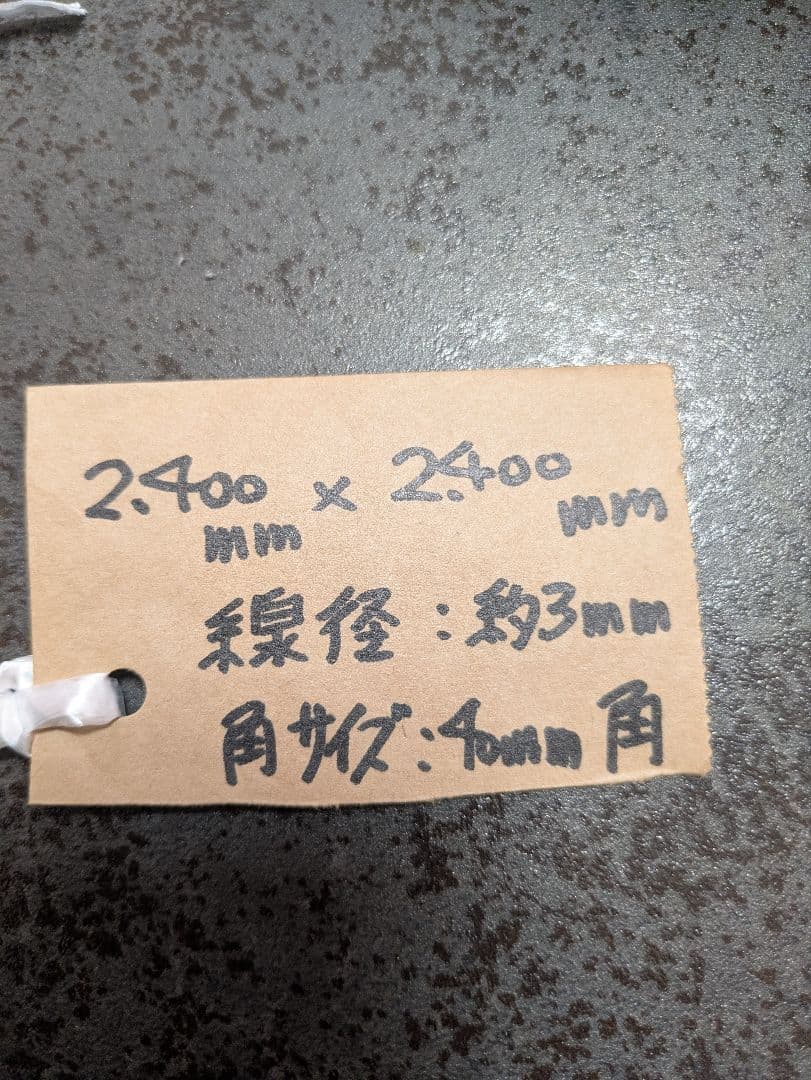 2.400mm × 2.400mm
線径:約3mm
角サイズ:40mm角